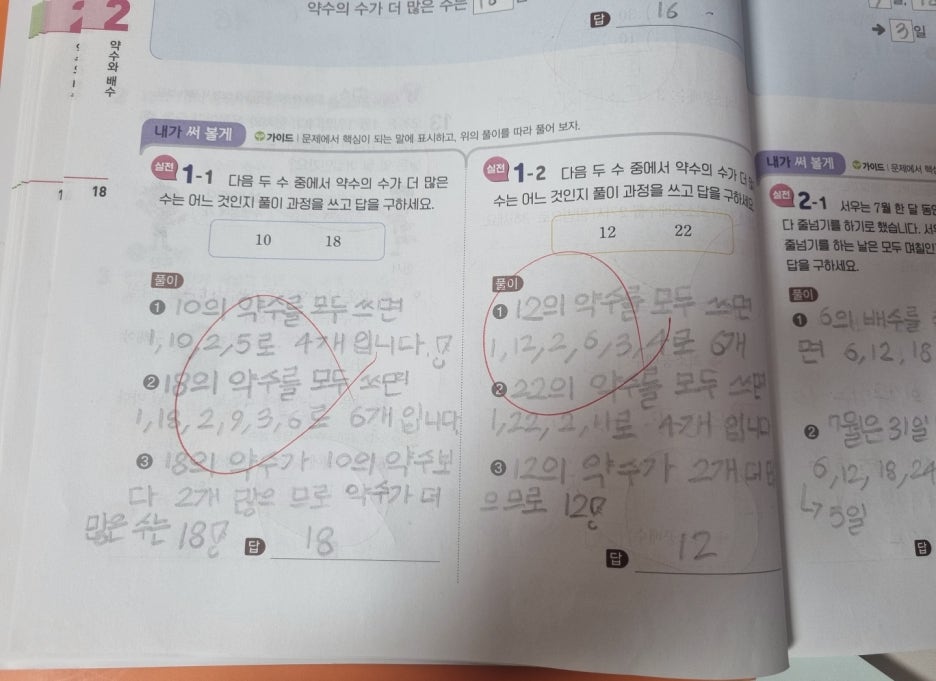 약수의 수가 더 많은 수는
답 16
→ 3 일
2
약수와 배수
18
내가 써 볼게
가이드 | 문제에서 핵심이 되는 말에 표시하고, 위의 풀이를 따라 풀어 보자.
실전 1-1 다음 두 수 중에서 약수의 수가 더 많은
수는 어느 것인지 풀이 과정을 쓰고 답을 구하세요.
10 18
풀이
❶ 10의 약수를 모두 쓰면
1, 10, 2, 5로 4개 입니다.
❷ 18의 약수를 모두 쓰면
1, 18, 2, 9, 3, 6로 6개 입니다
❸ 18의 약수가 10의 약수보
다 2개 많은 므로 약수가 더
많은 수는 18
답 18
실전 1-2 다음 두 수 중에서 약수의 수가 더
수는 어느 것인지 풀이 과정을 쓰고 답을 구하세요.
12 22
풀이
❶ 12의 약수를 모두 쓰면
1, 12, 2, 6, 3, 4로 6개
❷ 22의 약수를 모두 쓰면
1, 22, 2, 11로 4개 입니다
❸ 12의 약수가 2개 더
으므로 12
답 12
내가 써 볼게
가이드 | 문제에서 핵심
실전 2-1 서우는 7월 한 달 동안
다 줄넘기를 하기로 했습니다. 서우
줄넘기를 하는 날은 모두 며칠인
답을 구하세요.
풀이
❶ 6의 배수를
면 6, 12, 18
❷ 7월은 31일
6, 12, 18, 24
↳ 5일
답